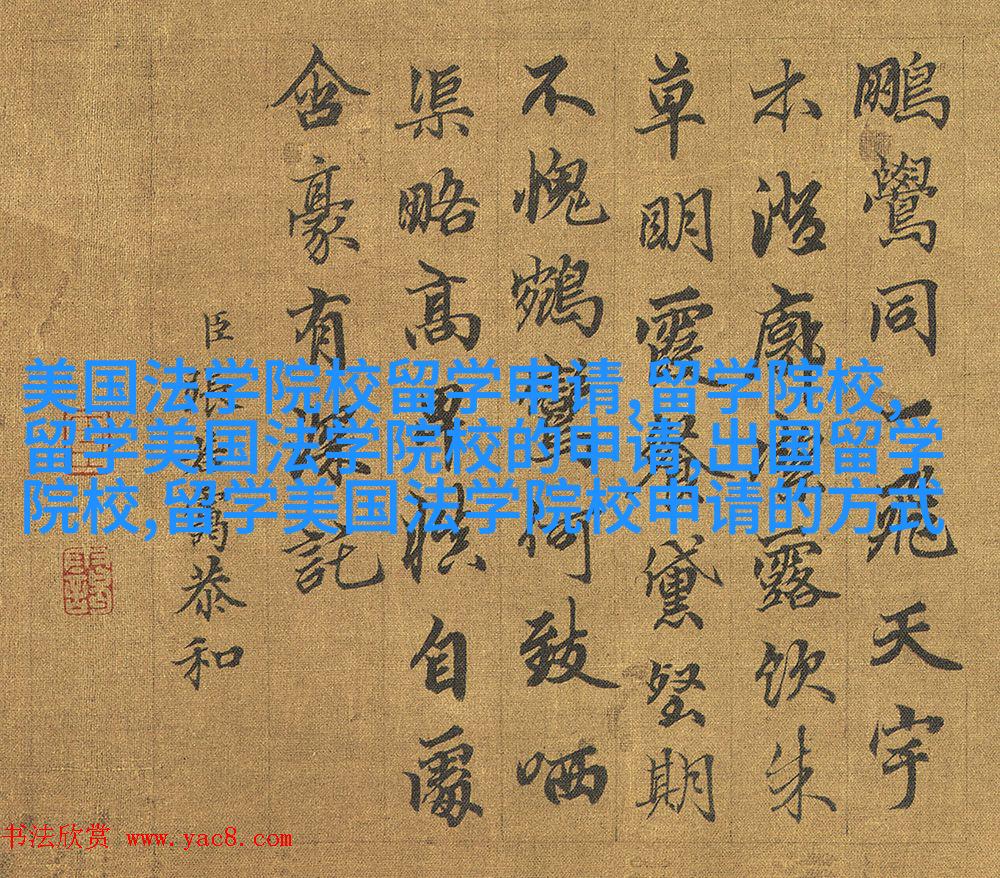 鵬鷽同一飛天宇
木澄廓露飲朱
草明霞餐黛堅期
不愧鶴何致哂
渠略高自處
含豪有深託
臣恭和
美国法学院校留学申请,留学院校,
留学美国法学院校的申请,出国留学
院校,留学美国法学院校申请的方式
书法欣赏 www.yac8.com